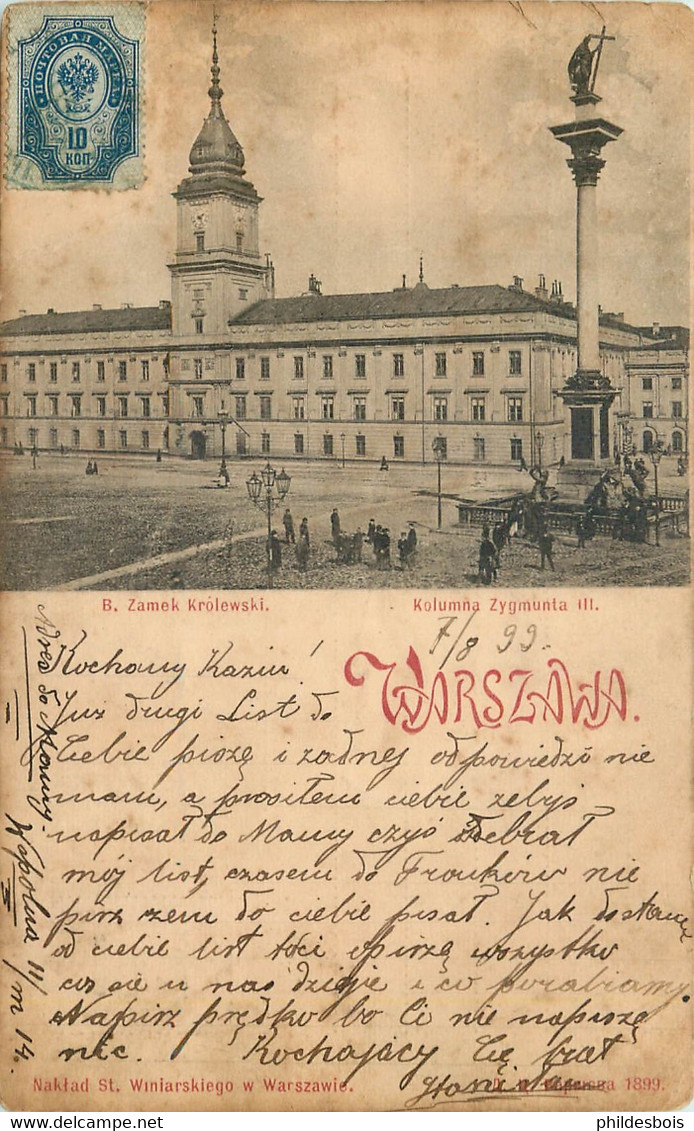 ПОЧТОВАЯ МАРКА
10
КОП
B. Zamek Królewski.
Kolumna Zygmunta III.
7/8 99.
WARSZAWA.
Kochany Kaziu!
Już drugi List do
Ciebie piszę i żadnej odpowiedzi nie
mam, a prosiłem ciebie żebyś
napisał do Mamy czyś odebrał
mój list, czasem do nie
pisz żem do ciebie pisał. Jak dostanę
od ciebie list to ci opiszę wszystko
co się u nas dzieje i co porabiamy.
Napisz prędko bo Ci nie napiszę
nic. Kochający Cię brat
Adres do Mamy.
Wspólna 11/ m 14.
Nakład St. Winiarskiego w Warszawie.
1899.
philedesbois